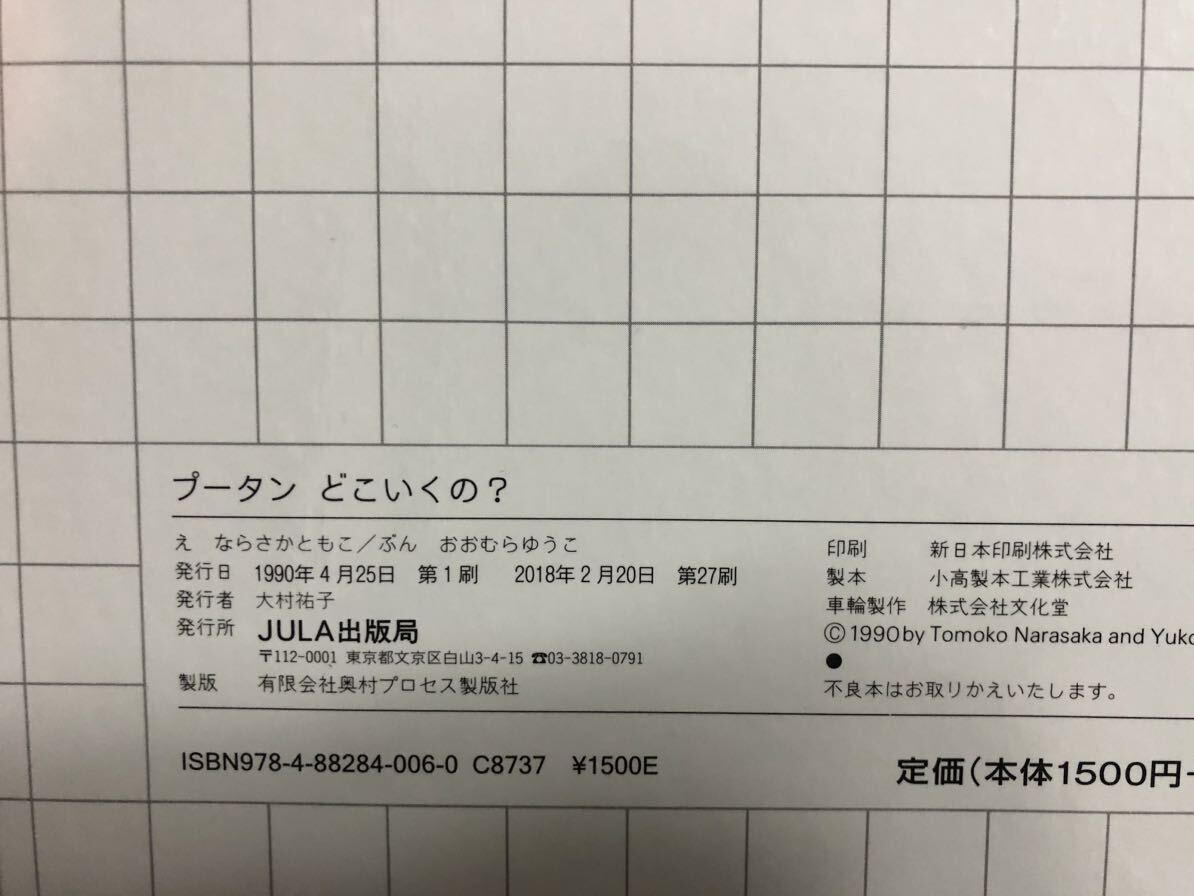 プータン どこいくの？
え ならさかともこ／ぶん おおむらゆうこ
発行日 1990年4月25日 第1刷 2018年2月20日 第27刷
発行者 大村祐子
発行所 JULA出版局
〒112-0001 東京都文京区白山3-4-15 ☎03-3818-0791
製版 有限会社奥村プロセス製版社
印刷 新日本印刷株式会社
製本 小高製本工業株式会社
車輪製作 株式会社文化堂
Ⓒ1990 by Tomoko Narasaka and Yuko
●
不良本はお取りかえいたします。
ISBN978-4-88284-006-0 C8737 ¥1500E
定価(本体1500円+